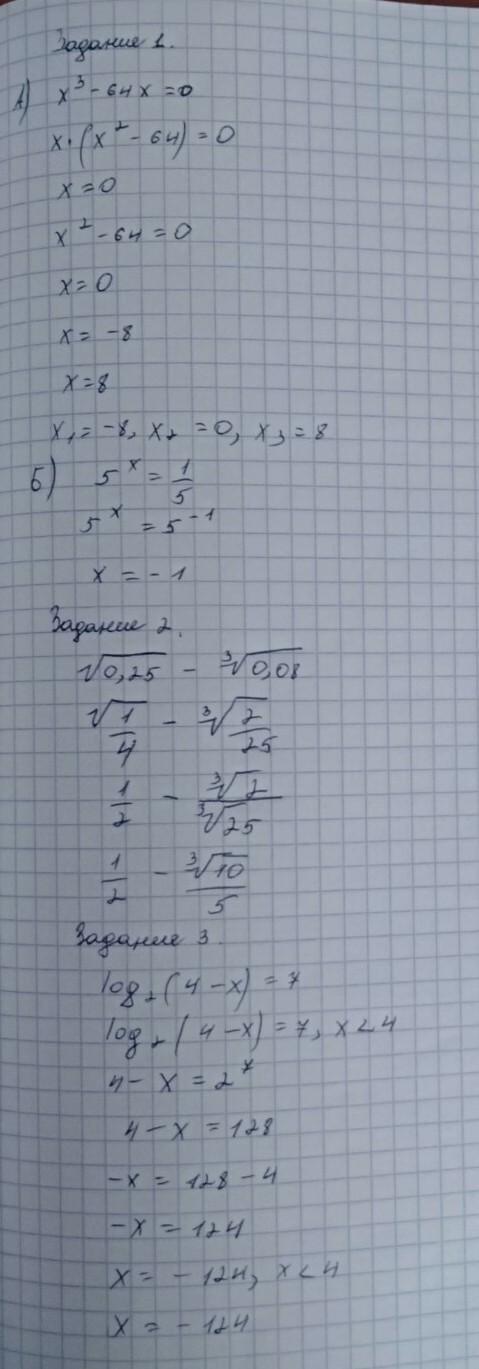 Задание 1.
А) x³ - 64x = 0
x·(x² - 64) = 0
x = 0
x² - 64 = 0
x = 0
x = -8
x = 8
x₁ = -8, x₂ = 0, x₃ = 8
Б) 5ˣ = 1/5
5ˣ = 5⁻¹
x = -1
Задание 2.
√0,25 - ∛0,08
√(1/4) - ∛(2/25)
1/2 - ∛2/∛25
1/2 - ∛10/5
Задание 3.
log₂(4 - x) = 7
log₂(4 - x) = 7, x < 4
4 - x = 2⁷
4 - x = 128
-x = 128 - 4
-x = 124
x = -124, x < 4
x = -124